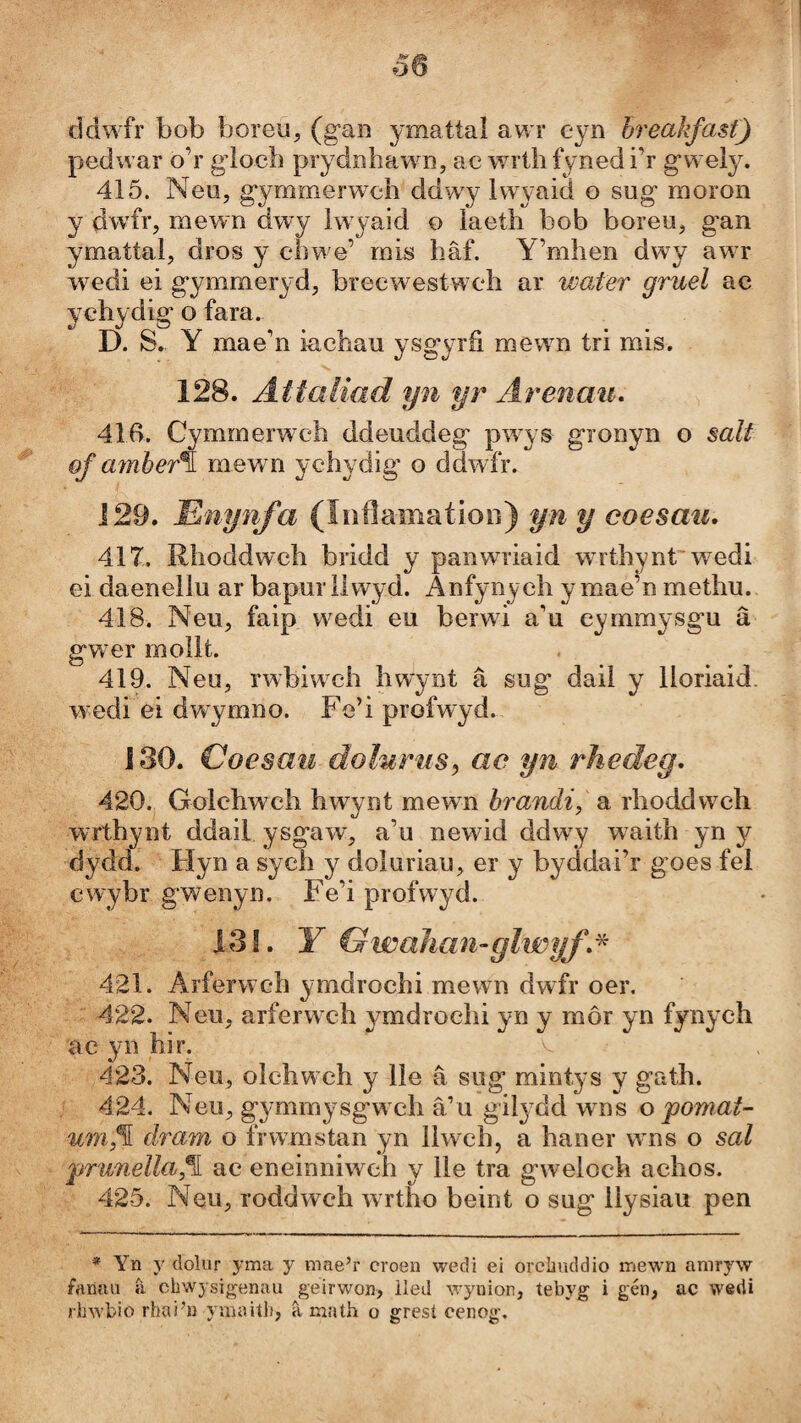 56
ddwfr bob boreu, (gan ymattal awr cyn breakfast)
pedwar o'r gloch prydnhawn, ac wrth fyned i'r gwely.
415. Neu, gymmerwch ddwy lwyaid o sug moron
y dwfr, mewn dwy lwyaid o laeth bob boreu, gan
ymattal, dros y chwe' mis hâf. Y'mhen dwy awr
wedi ei gymmeryd, brecwestwch ar water gruel ac
ychydig o fara.
D. S. Y mae'n iachau ysgyrfi mewn tri mis.
128. Attaliad yn yr Arenau.
416. Cymmerwch ddeuddeg pwys gronyn o salt
of amber¶ mewn ychydig o ddwfr.
129. Enynfa (Inflamation) yn y coesau.
417. Rhoddwch bridd y panwriaid wrthynt wedi
ei daenellu ar bapur llwyd. Anfynych y mae'n methu.
418. Neu, faip wedi eu berwi a'u cymmysgu â
gwer mollt.
419. Neu, rwbiwch hwynt â sug dail y lloriaid
wedi ei dwymno. Fe'i profwyd.
130. Coesau dolurus, ac yn rhedeg.
420. Golchwch hwynt mewn brandi, a rhoddwch
wrthynt ddail ysgaw, a'u newid ddwy waith yn y
dydd. Hyn a sych y doluriau, er y byddai'r goes fel
cwybr gwenyn. Fe'i profwyd.
131. Y Gwahan-glwyf.*
421. Arferwch ymdrochi mewn dwfr oer.
422. Neu, arferwch ymdrochi yn y môr yn fynych
ac yn hir.
423. Neu, olchwch y lle â sug mintys y gath.
424. Neu, gymmysgwch â'u gilydd wns o pomat-
um,¶ dram o frwmstan yn llwch, a haner wns o sal
prunella,¶ ac eneinniwch y lle tra gweloch achos.
425. Neu, roddwch wrtho beint o sug llysiau pen
* Yn y dolur yma y mae'r croen wedi ei orchuddio mewn amryw
fanau â chwysigenau geirwon, lled wynion, tebyg i gén, ac wedi
rhwbio rhai'n ymaith, â math o grest cenog.